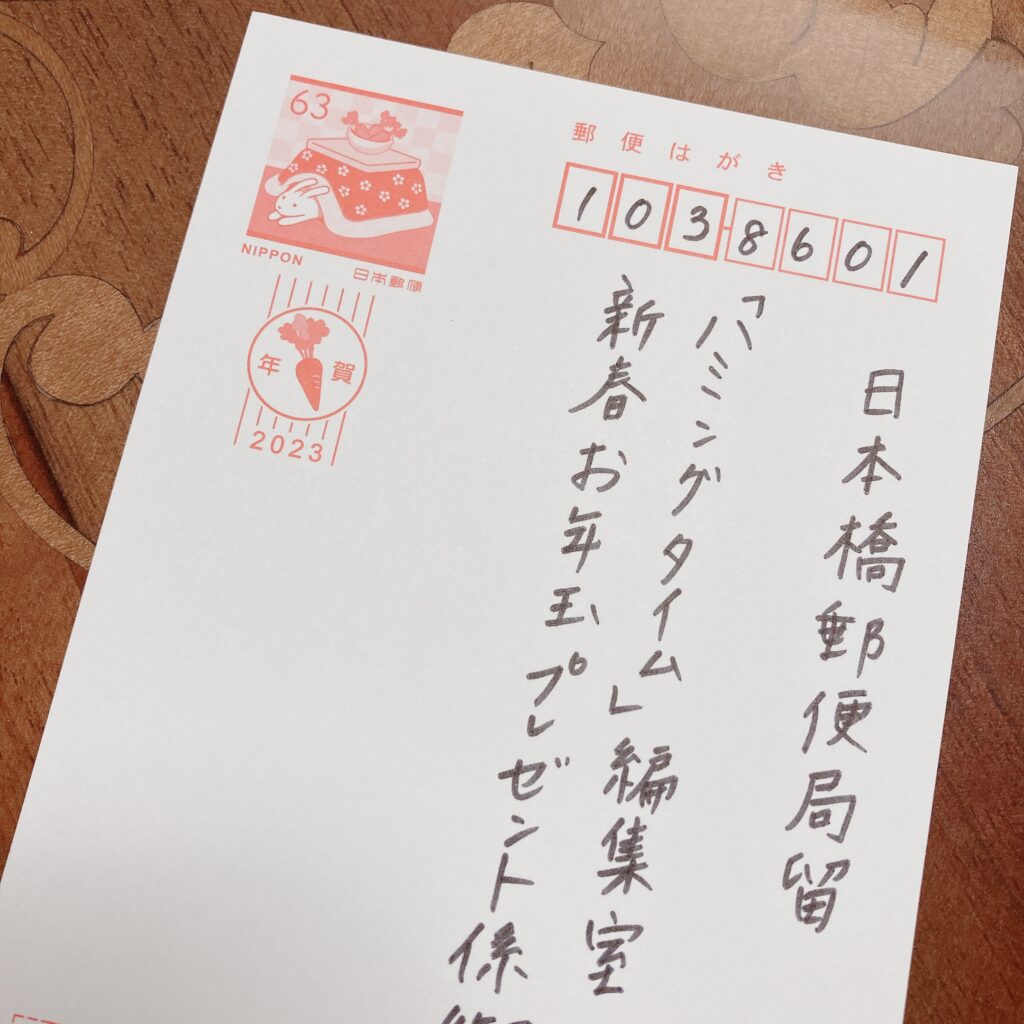 63
NIPPON
日本郵便
年賀
2023
郵便はがき
103-8601
日本橋郵便局留
「ハミングタイム」編集室
新春お年玉プレゼント係